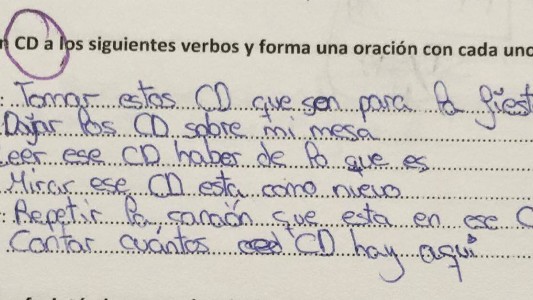 n CD a los siguientes verbos y forma una oración con cada uno
: Tomar estos CD que son para la fiest
Dajar los CD sobre mi mesa
Leer ese CD haber de lo que es
Mirar ese CD esta como nuevo
: Repetir la canción que esta en ese C
Contar cuántos CD hay aquí